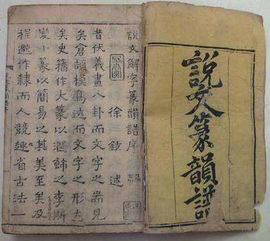 說文篆韻譜
說文解字篆韻譜序
徐鉉述
昔伏羲畫八卦而文字之耑見
矣倉頡模鳥迹而文字之形立
矣史籀作大篆以潤飾之李斯
變小篆以簡易之其美至矣及
程邈作隸而人競趣省古法一